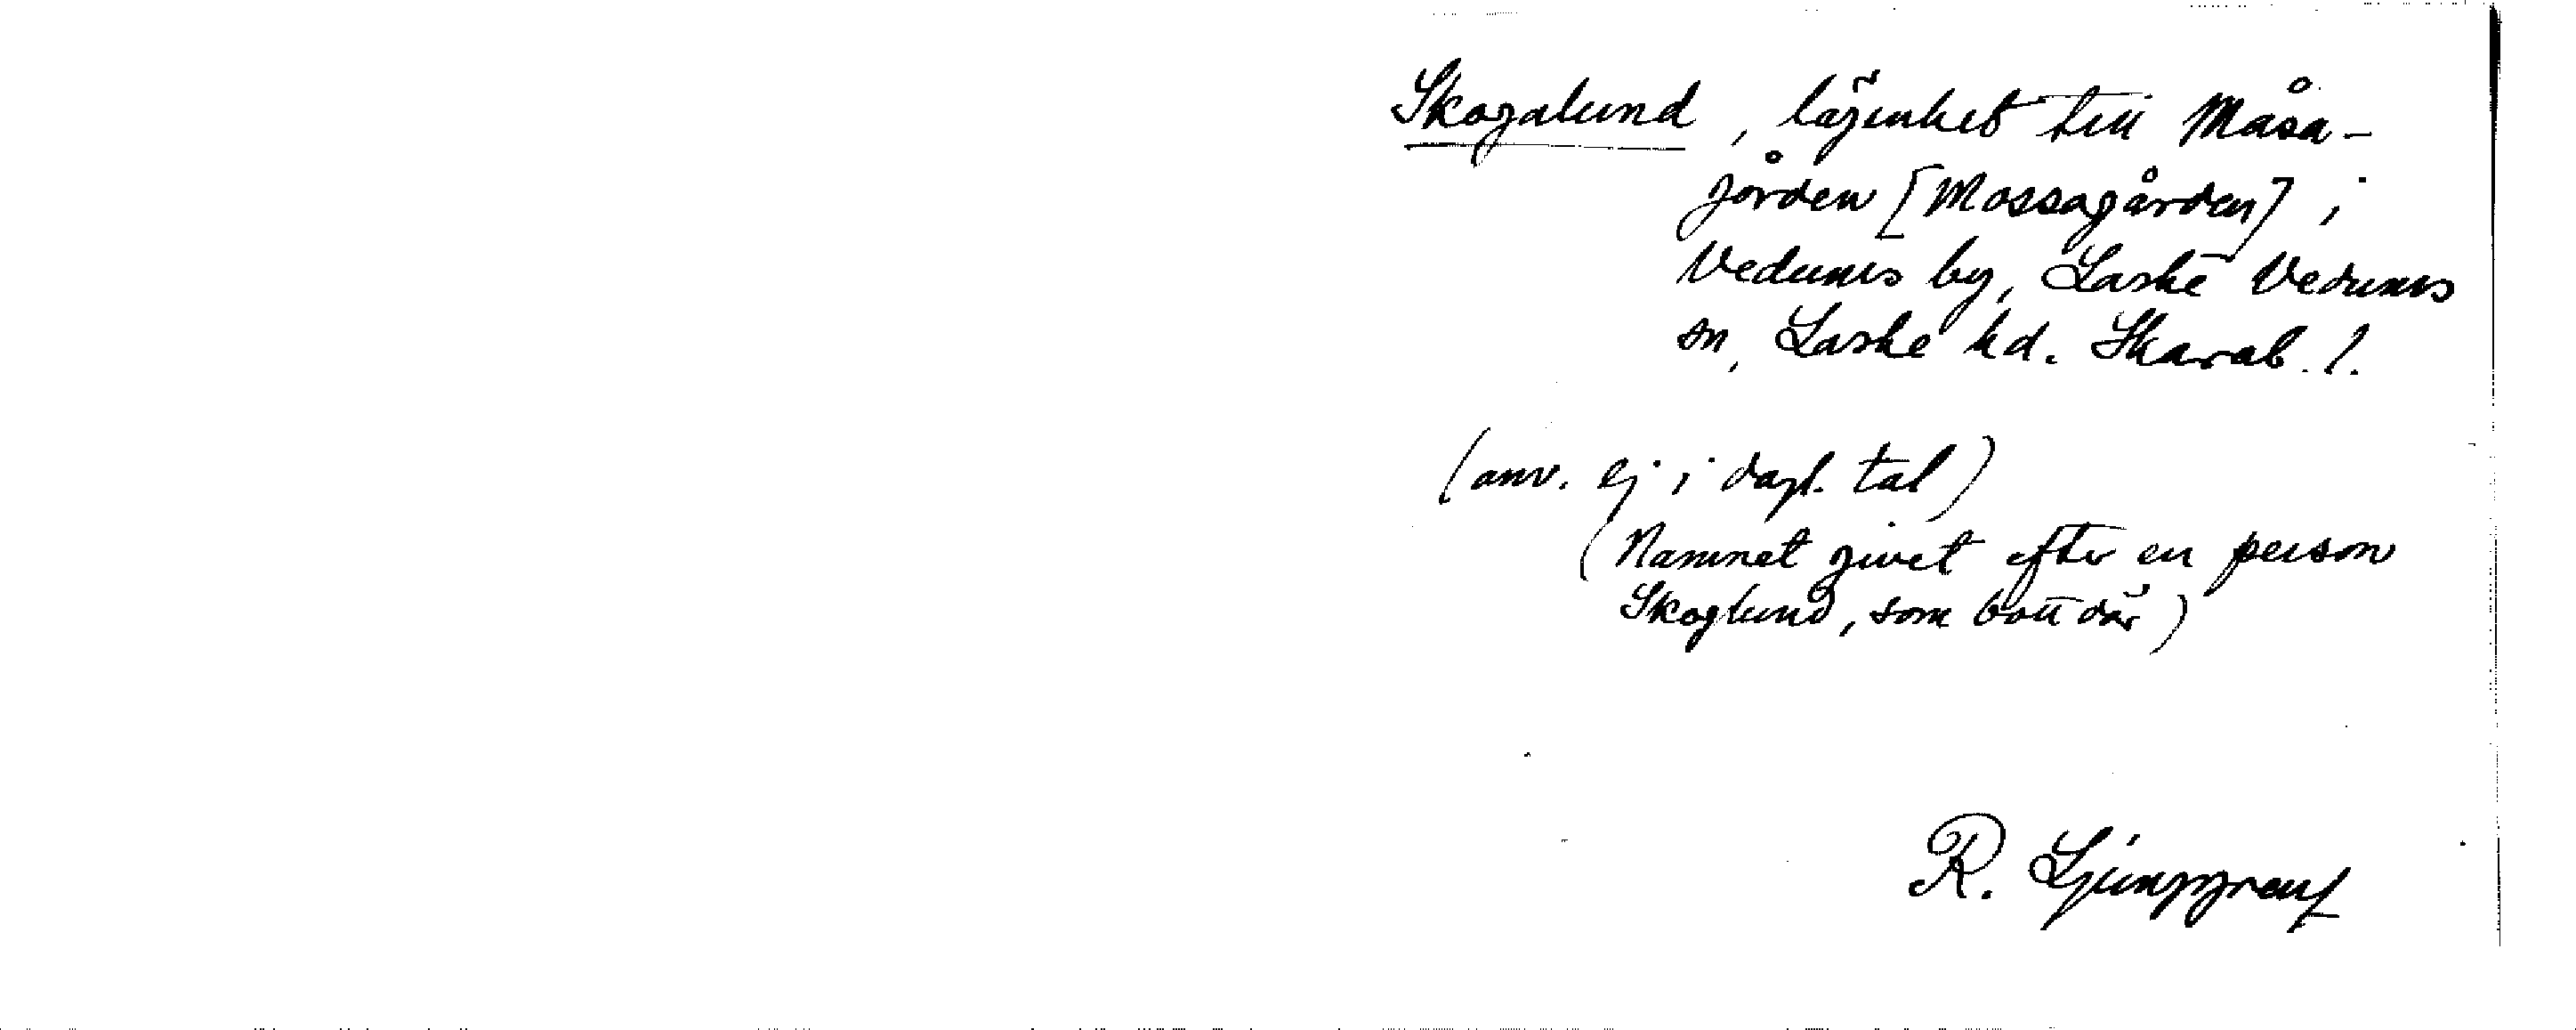 Skogalund, lägenhet till Måsa-
gården [Mossagården] i
Vedums by, Laske Vedums
sn, Laske hd. Skarab. l.
(anv. ej i dagl. tal)
(Namnet givet efter en person
Skoglund, som bott där)
R. Ljunggren